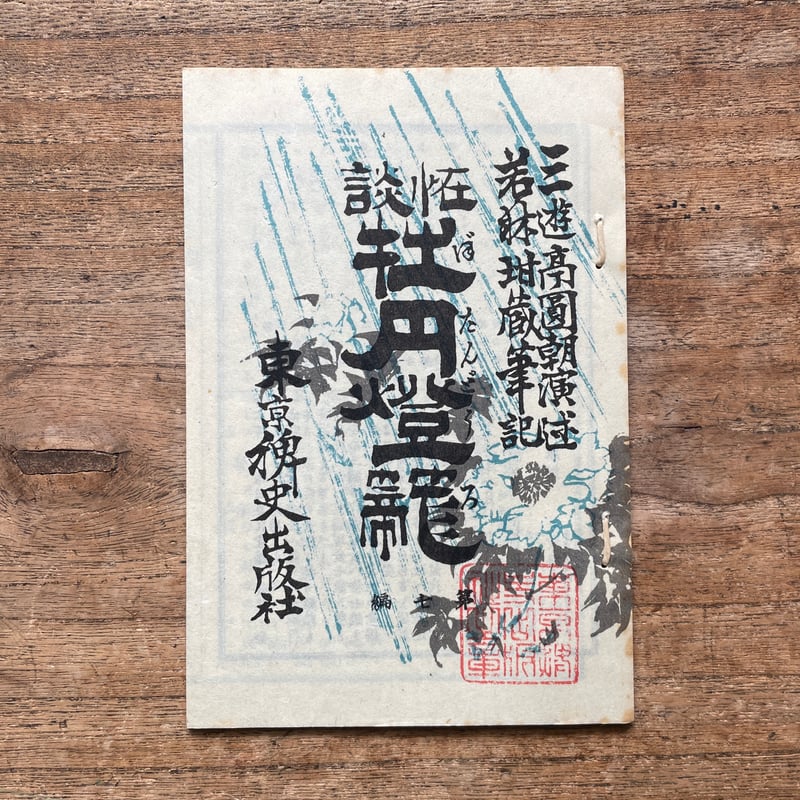 三遊亭圓朝演述
若林玵藏筆記
恠談
牡丹燈籠
ぼたんどうろう
第編
東京稗史出版社